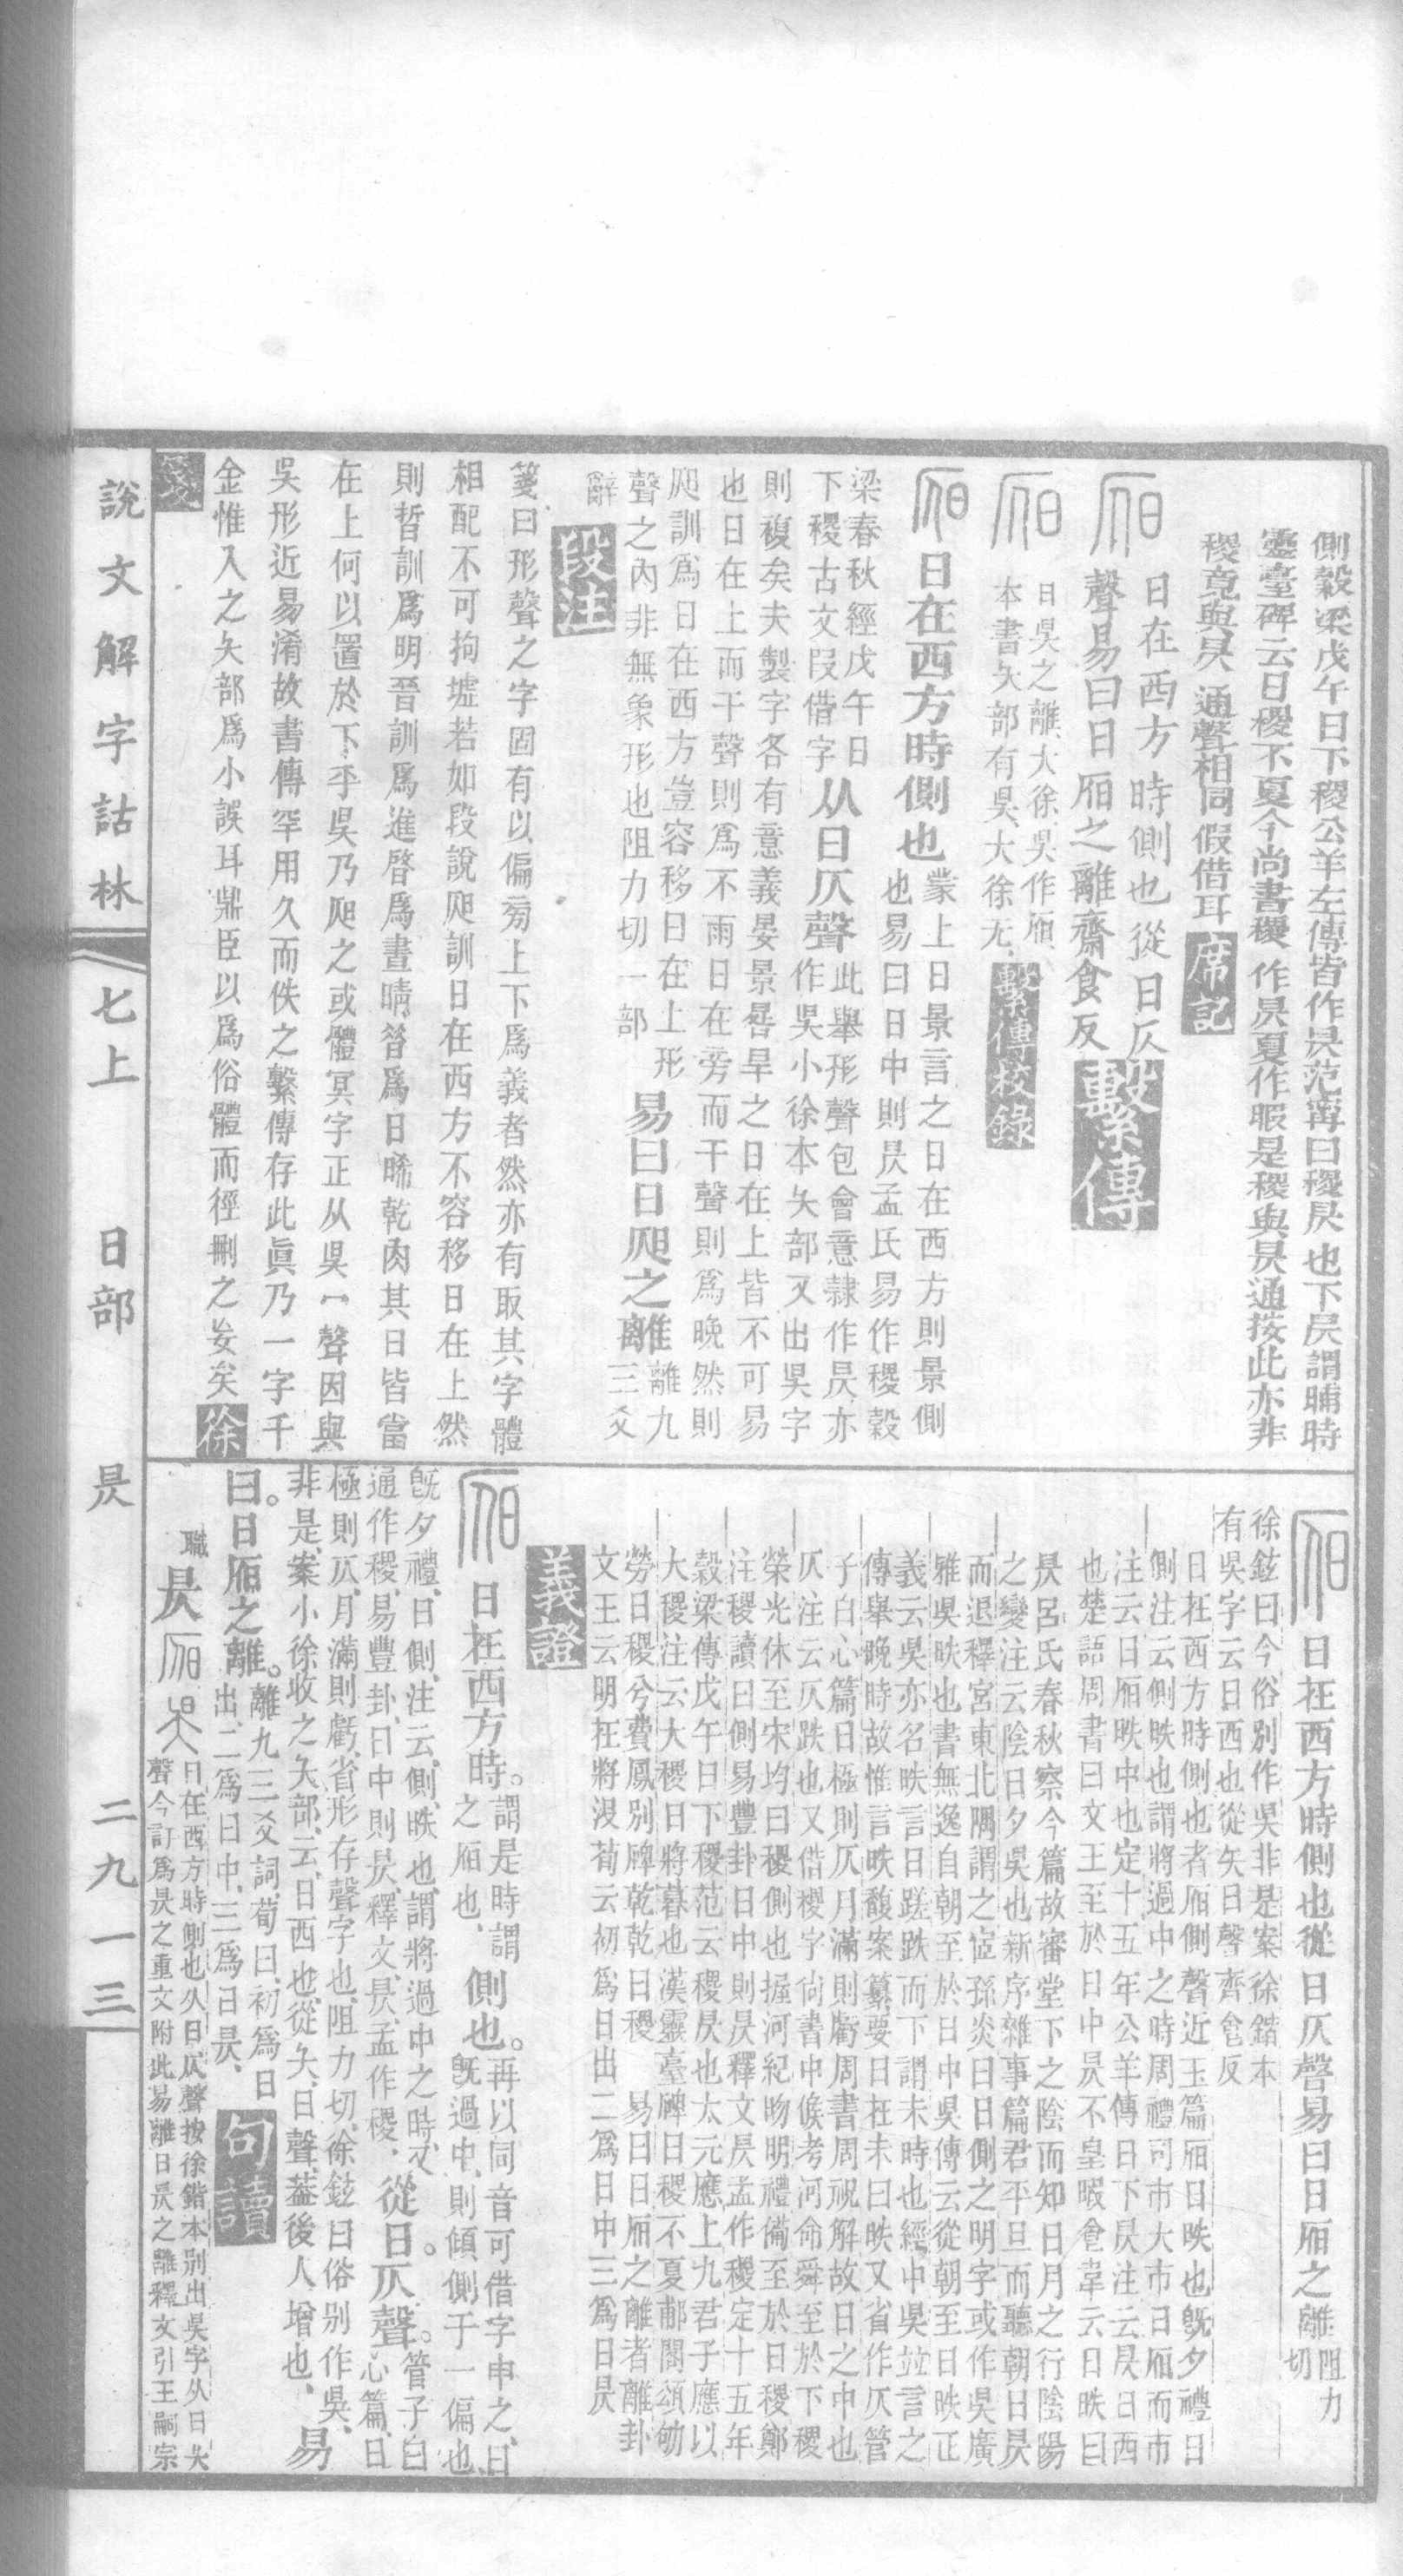 側穀梁戊午日下稷公羊左傳皆作昃范甯曰稷昃也下昃謂晡時
靈臺碑云日稷不夏今尚書稷作昃夏作暇是稷與昃通按此亦非
稷竟與昃通聲相同假借耳席記
日在西方時側也從日仄
聲易曰日𣅦之離齋食反繫傳
日㫘之離大徐㫘作𣅦
本書夨部有㫘大徐无繫傳校錄
𣅦日在西方時側也蒙上日景言之日在西方則景側
也易曰日中則昃孟氏易作稷穀
梁春秋經戊午日
下稷古文叚借字从日仄聲此舉形聲包會意隸作昃亦
作㫘小徐本夨部又出㫘字
則複矣夫製字各有意義晏景晷旱之日在上皆不可易
也日在上而干聲則爲不雨日在旁而干聲則爲晚然則
𣅔訓爲日在西方豈容移日在上形
聲之內非無象形也阻力切一部易曰日𣅔之離離九
三爻
辭段注
箋曰形聲之字固有以偏旁上下爲義者然亦有取其字體
相配不可拘墟若如段說𣅔訓日在西方不容移日在上然
則晢訓爲明晉訓爲進晵爲晝晴㫺爲日晞乾肉其日皆當
在上何以置於下乎㫘乃𣅔之或體冥字正从㫘冖聲因與
吳形近易淆故書傳罕用久而佚之繫傳存此眞乃一字千
金惟入之夨部爲小誤耳鼎臣以爲俗體而徑刪之妄矣徐
箋
𣅦日在西方時側也從日仄聲易曰日𣅦之離阻力
切
徐鉉曰今俗別作㫘非是案徐鍇本
有㫘字云日西也從夨日聲齊食反
日在西方時側也者𣅦側聲近玉篇𣅦日昳也旣夕禮日
側注云側昳也謂將過中之時周禮司市大市日𣅦而市
注云日𣅦昳中也定十五年公羊傳日下昃注云昃日西
也楚語周書曰文王至於日中昃不皇暇食韋云日昳曰
昃呂氏春秋察今篇故審堂下之陰而知日月之行陰陽
之變注云陰日夕㫘也新序雜事篇君平旦而聽朝日昃
而退釋宮東北隅謂之宧孫炎曰日側之明字或作㫘廣
雅㫘昳也書無逸自朝至於日中㫘傳云從朝至日昳正
義云㫘亦名昳言日蹉跌而下謂未時也經中㫘並言之
傳舉晚時故惟言昳馥案纂要日在未曰昳又省作仄管
子白心篇日極則仄月滿則虧周書周祝解故日之中也
仄注云仄跌也又借稷字尚書中候考河命舜至於下稷
榮光休至宋均曰稷側也握河紀昒明禮備至於日稷鄭
注稷讀曰側易豐卦日中則昃釋文昃孟作稷定十五年
穀梁傳戊午日下稷范云稷昃也太元應上九君子應以
大稷注云大稷日將暮也漢靈臺碑日稷不夏郙閣頌劬
勞日稷兮費鳳別碑乾乾日稷　易曰日𣅦之離者離卦
文王云明在將沒荀云初爲日出二爲日中三爲日昃
義證
𣅦日在西方時。謂是時謂
之𣅦也、側也。再以同音可借字申之、日
旣過中、則傾側于一偏也
旣夕禮、日側、注云、側、昳也、謂將過中之時、又
通作稷、易豐卦、日中則昃、釋文、昃、孟作稷、從日。仄聲。管子白
心篇、日
極則仄、月滿則虧、省形存聲字也、阻力切、徐鉉曰俗別作㫘、
非是、案小徐收之夨部、云、日西也、從夨、日聲、蓋後人增也、易
曰。日𣅦之離。離九三爻詞、荀曰、初爲日
出、二爲日中、三爲日昃、句讀
職昃𣅦㫘日、在西方時側也从日、仄聲按徐鍇本別出㫘字从日夨
聲今訂爲昃之重文附此易離日昃之離釋文引王嗣宗
說文解字詁林
七上　日部　昃
二九一三